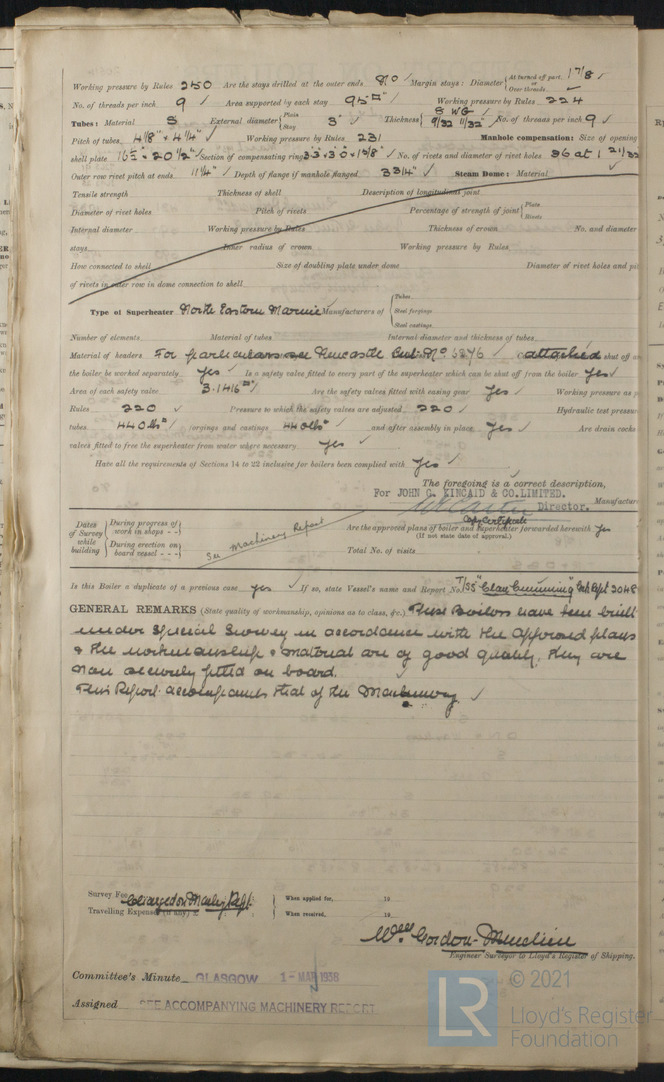 Working pressure by Rules 250 Are the stays drilled at the outer ends No ✓ Margin stays: Diameter {At turned off part, or Over threads 1 7/8 ✓
No. of threads per inch 9 ✓ Area supported by each stay 95 ▫" ✓ Working pressure by Rules 224
Tubes: Material S External diameter {Plain Stay 3" ✓ Thickness {8 WG 9/32 11/32" ✓ No. of threads per inch 9 ✓
Pitch of tubes 4 1/8" × 4 1/4" ✓ Working pressure by Rules 231 Manhole compensation: Size of opening
shell plate 16 × 20 1/2" ✓ Section of compensating ring No. of rivets and diameter of rivet holes 36 at 1 21/32
Outer row rivet pitch at ends 11 1/4" ✓ Depth of flange if manhole flanged 3 3/4" ✓ Steam Dome: Material
Tensile strength Thickness of shell Description of longitudinal joint
Diameter of rivet holes Pitch of rivets Percentage of strength of joint {Plate Rivets
Internal diameter Working pressure by Rules Thickness of crown No. and diameter
stays Inner radius of crown Working pressure by Rules
How connected to shell Size of doubling plate under dome Diameter of rivet holes and pi
of rivets in outer row in dome connection to shell
Type of Superheater North Eastern Marine ✓ Manufacturers of {Tubes Steel forgings Steel castings
Number of elements Material of tubes Internal diameter and thickness of tubes
Material of headers For particulars see Newcastle No 5276 ✓ attached shut off an
the boiler be worked separately yes ✓ Is a safety valve fitted to every part of the superheater which can be shut off from the boiler yes ✓
Area of each safety valve 3.1416 ▫" ✓ Are the safety valves fitted with easing gear yes ✓ Working pressure as p
Rules 220 ✓ Pressure to which the safety valves are adjusted 220 ✓ Hydraulic test pressure
tubes 440 lbs ▫" forgings and castings 440 lbs ▫" ✓ and after assembly in place yes ✓ Are drain cocks
valves fitted to free the superheater from water where necessary yes ✓
Have all the requirements of Sections 14 to 22 inclusive for boilers been complied with yes ✓
The foregoing is a correct description,
For JOHN G. KINCAID & CO. LIMITED.
Director. Manufacture
Dates of Survey while building {During progress of work in shops - - During erection on board vessel - - - See Machinery Report Are the approved plans of boiler and superheater forwarded herewith yes
Copy Certificate
(If not state date of approval.)
Total No. of visits
Is this Boiler a duplicate of a previous case yes ✓ If so, state Vessel's name and Report No. T/SS "Clan Cumming" Gck Rpt 2048
GENERAL REMARKS (State quality of workmanship, opinions as to class, &c.) These Boilers have been built
under Special Survey in accordance with the approved plans
& the workmanship & material are of good quality. They are
now securely fitted on board.
This Report accompanies that of the Machinery ✓
Survey Fee Charged on Machy Rpt. When applied for, 19
Travelling Expenses (if any) £ When received, 19
Wm Gordon
Engineer Surveyor to Lloyd's Register of Shipping.
Committee's Minute GLASGOW 1 - MAR 1938
Assigned SEE ACCOMPANYING MACHINERY REPORT
LR © 2021
Lloyd's Register
Foundation